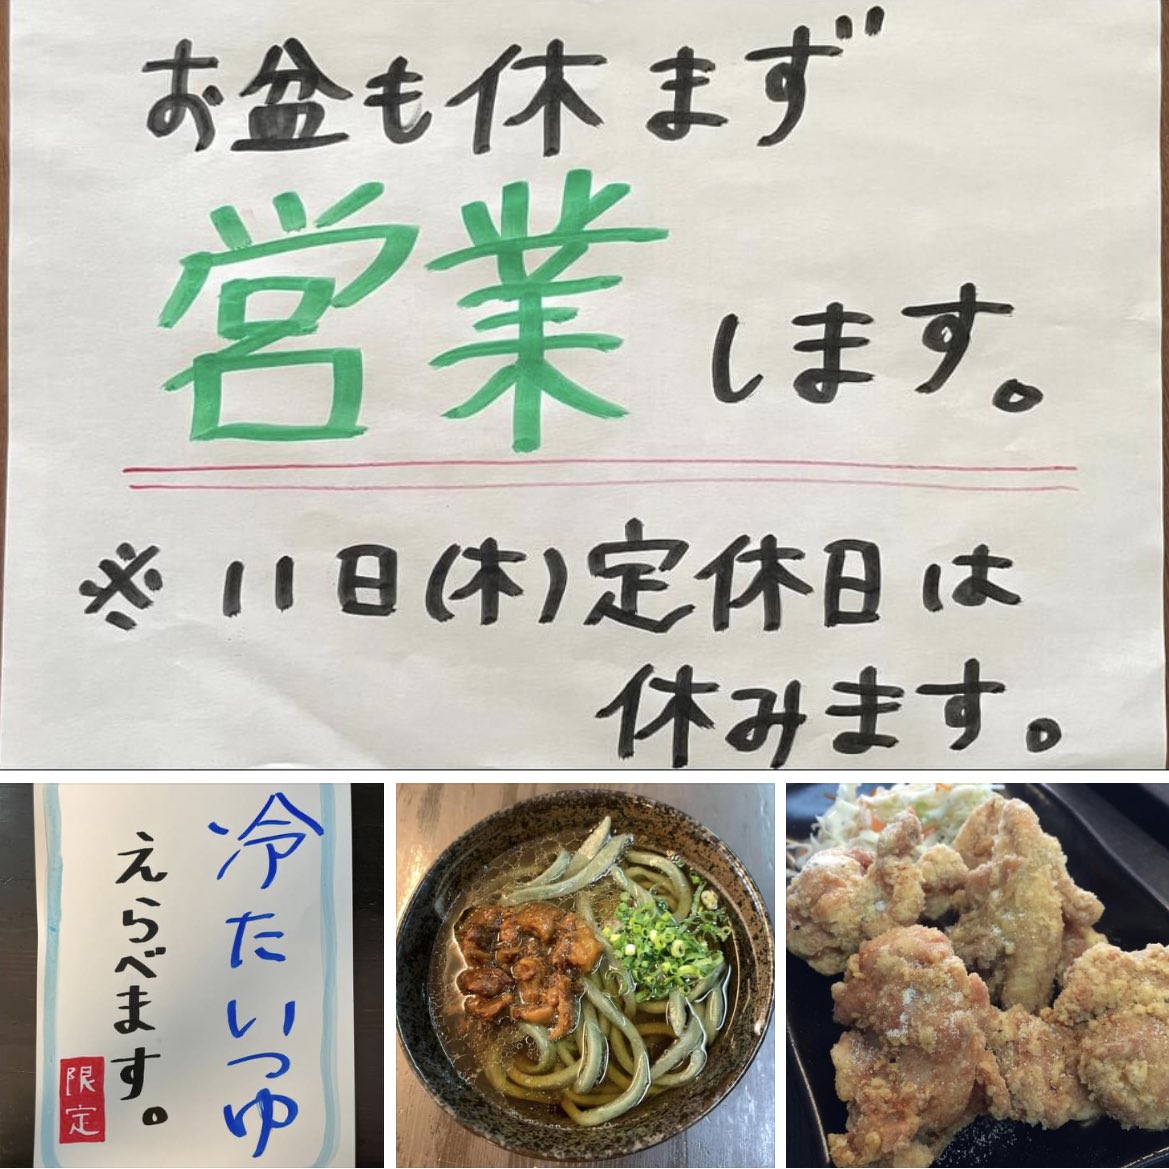 お盆も休まず
営業します。
※11日(木)定休日は
休みます。
冷たいつゆ
えらべます。
限定